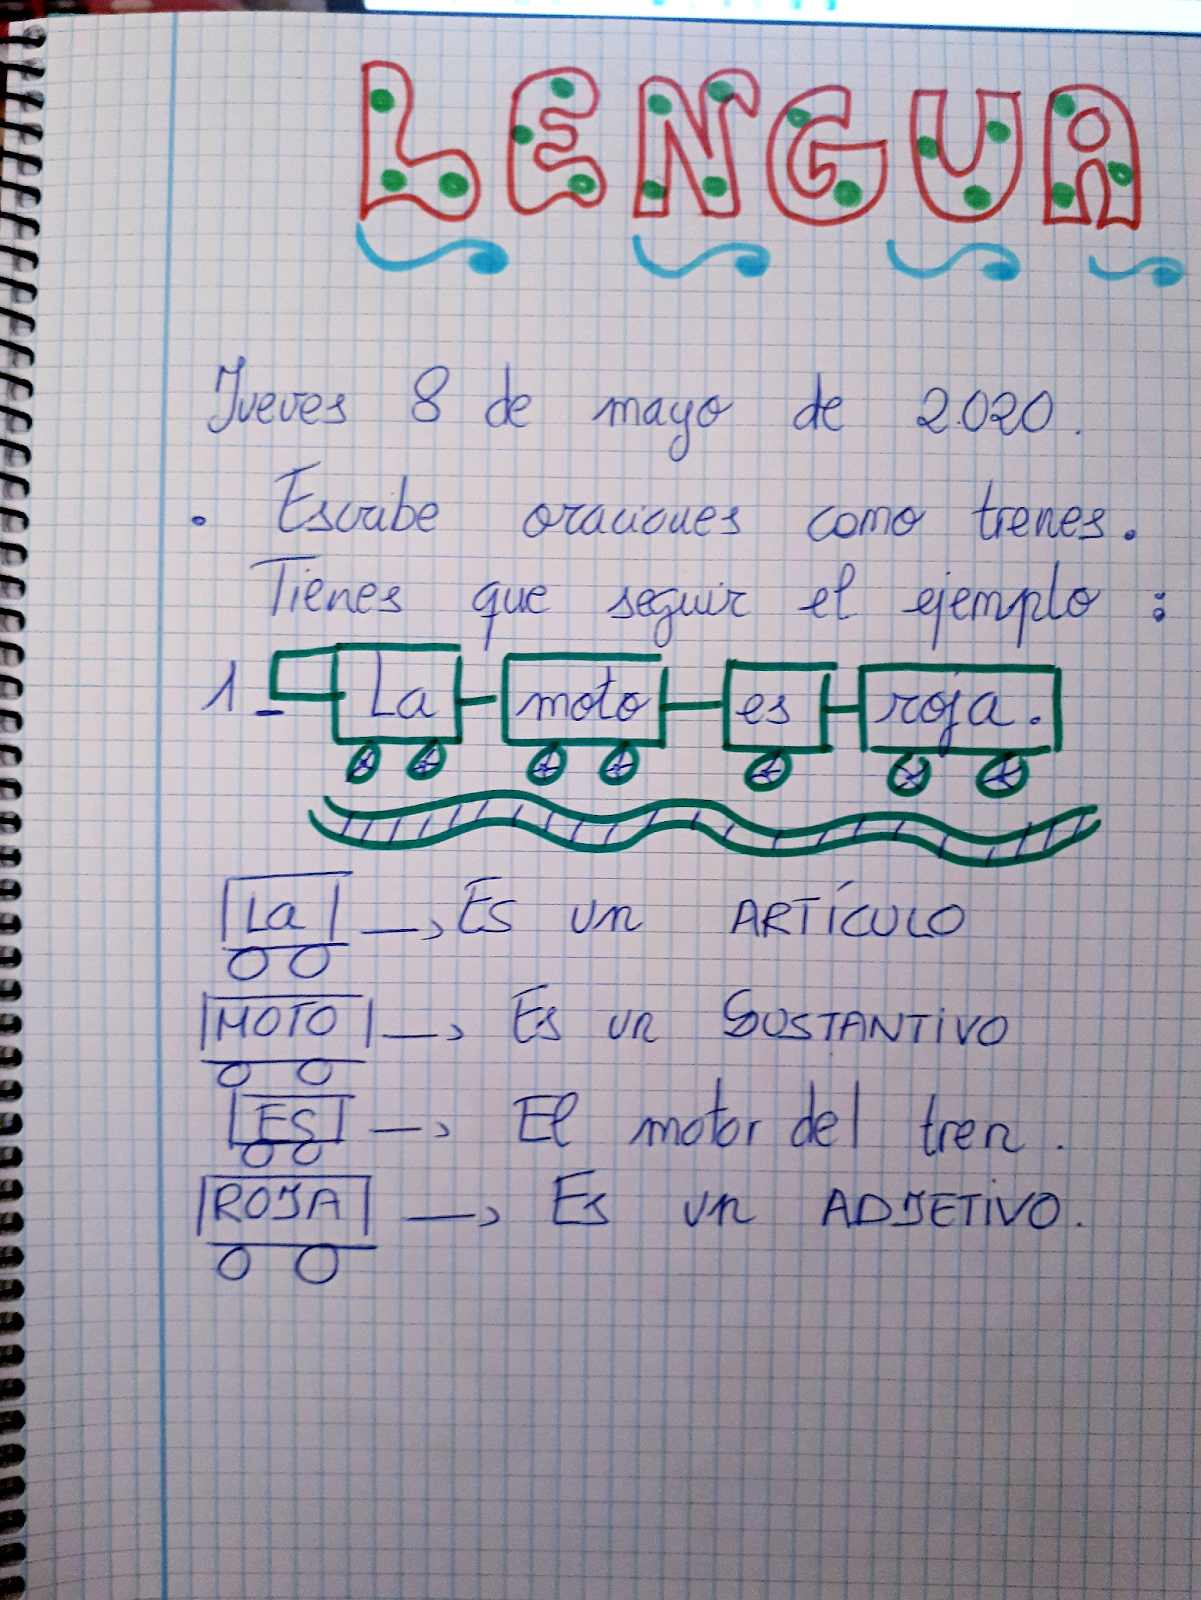 LENGUA
Jueves 8 de mayo de 2.020.
. Escribe oraciones como trenes.
Tienes que seguir el ejemplo:
1_ La moto es roja.
La —> Es un ARTÍCULO
MOTO —> Es un SUSTANTIVO
ES —> El motor del tren.
ROJA —> Es un ADJETIVO.